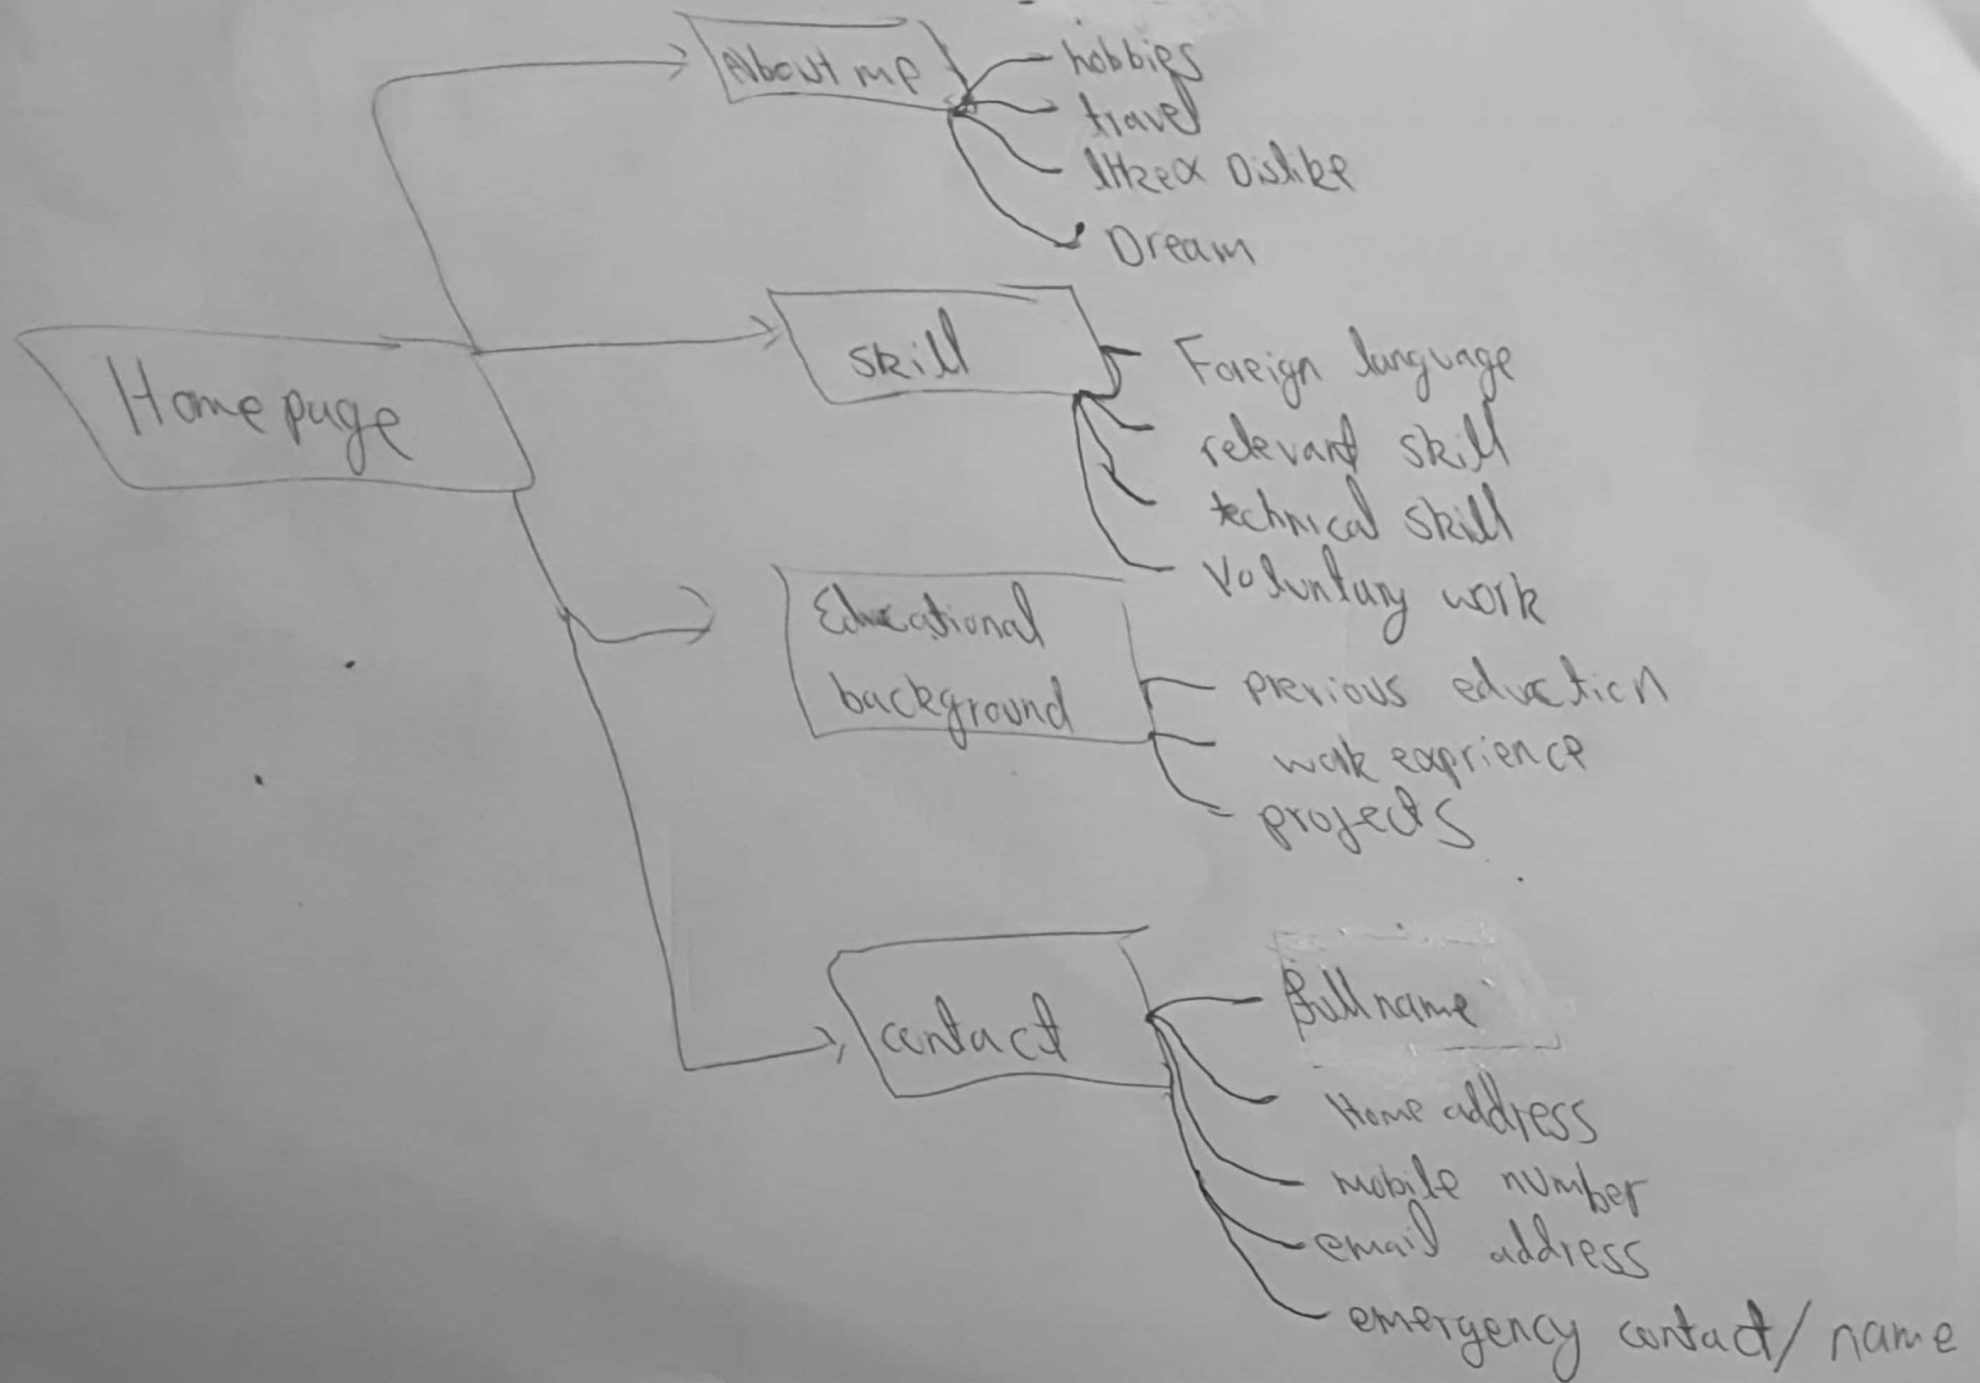 About me
hobbies
travel
like & Dislike
Dream
Home page
skill
Foreign language
relevant skill
technical skill
Voluntary work
Educational
background
previous eduction
work exprience
projects
contact
full name
Home address
mobile number
email address
emergency contact/ name